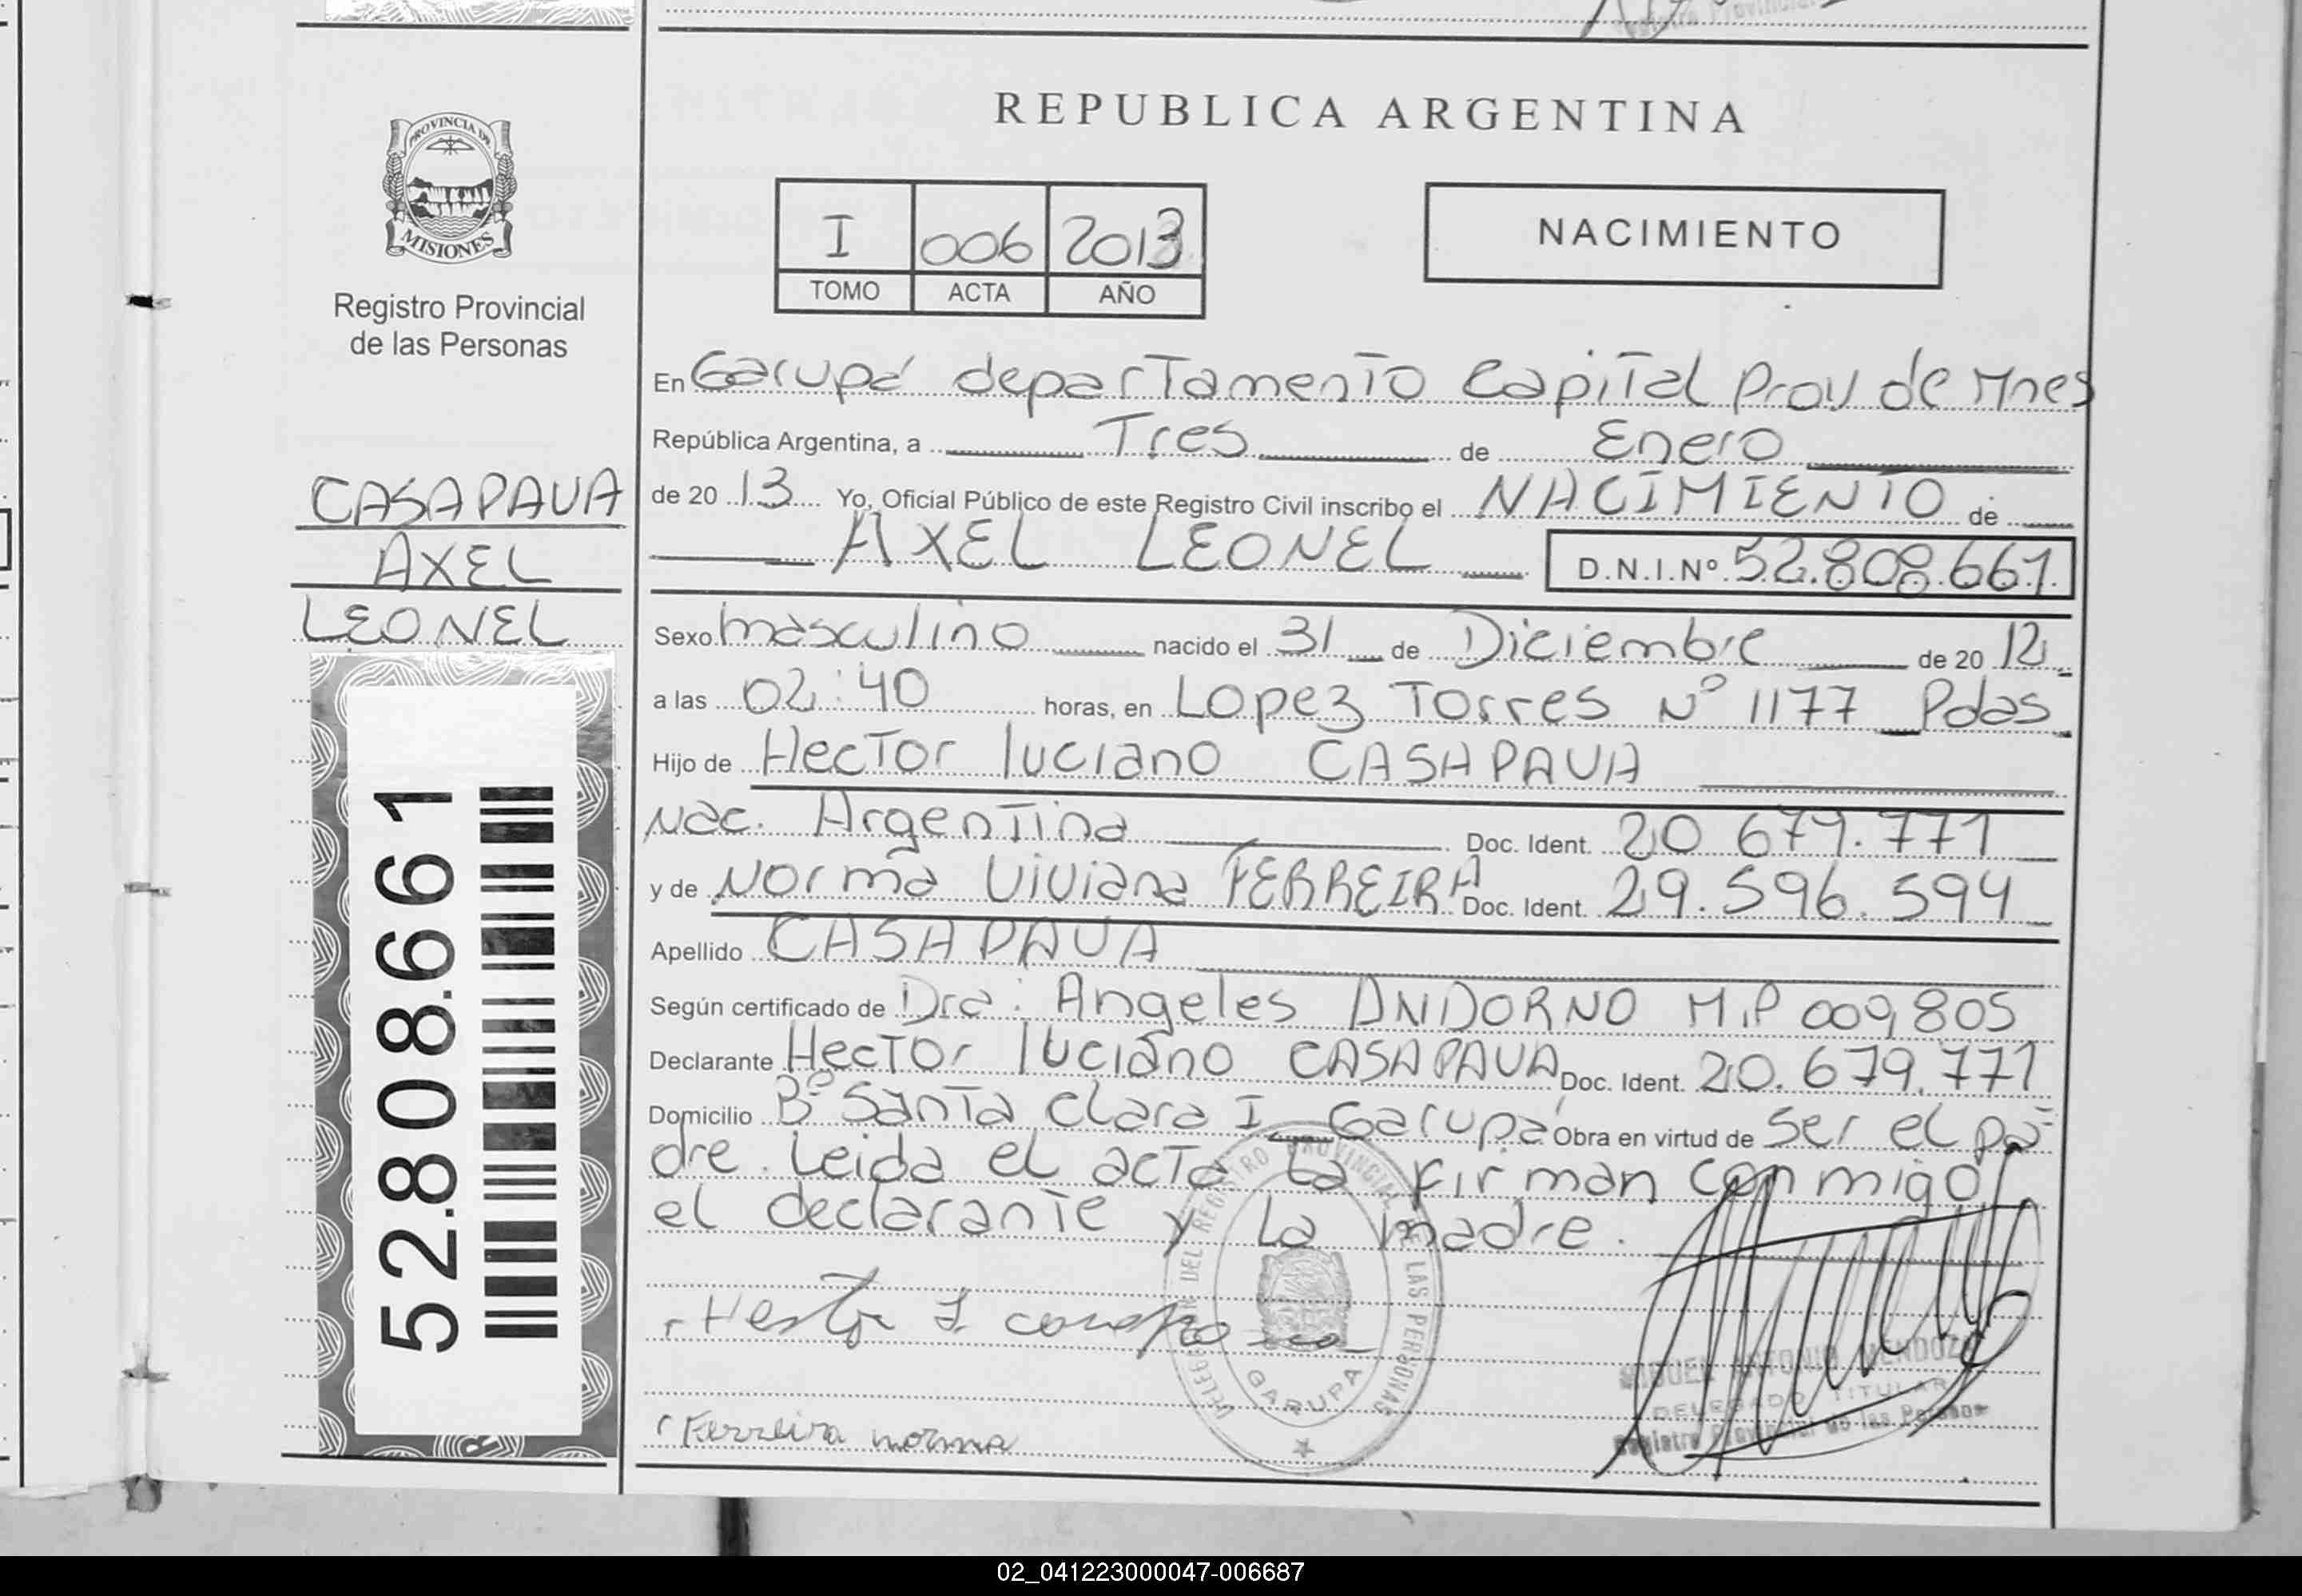 REPUBLICA ARGENTINA
PROVINCIA DE
MISIONES
Registro Provincial
de las Personas
I 006 2013
TOMO ACTA AÑO
NACIMIENTO
CASAPAVA
AXEL
LEONEL
52.808.661
En Garupá departamento Capital Prov de Mnes
República Argentina, a Tres de Enero
de 20 13 Yo, Oficial Público de este Registro Civil inscribo el NACIMIENTO de
AXEL LEONEL D.N.I.Nº 52.808.661
Sexo masculino nacido el 31 de Diciembre de 20 12
a las 02:40 horas, en Lopez Torres Nº 1177 Pdas
Hijo de Hector luciano CASAPAVA
Nac. Argentina Doc. Ident. 20 679.771
y de Norma Viviana FERREIRA Doc. Ident. 29.596.594
Apellido CASAPAVA
Según certificado de Dra: Angeles ANDORNO M.P 009805
Declarante Hector luciano CASAPAVA Doc. Ident. 20.679.771
Domicilio Bº Santa Clara I Garupá Obra en virtud de ser el pa
dre. Leida el acta la firman conmigo
el declarante y la madre.
DELEGACION DEL REGISTRO PROVINCIAL DE LAS PERSONAS
GARUPA
MIGUEL ANTONIO MENDOZA
DELEGADO TITULAR
Registro Provincial de las Personas
Ferreira norma
02_041223000047-006687